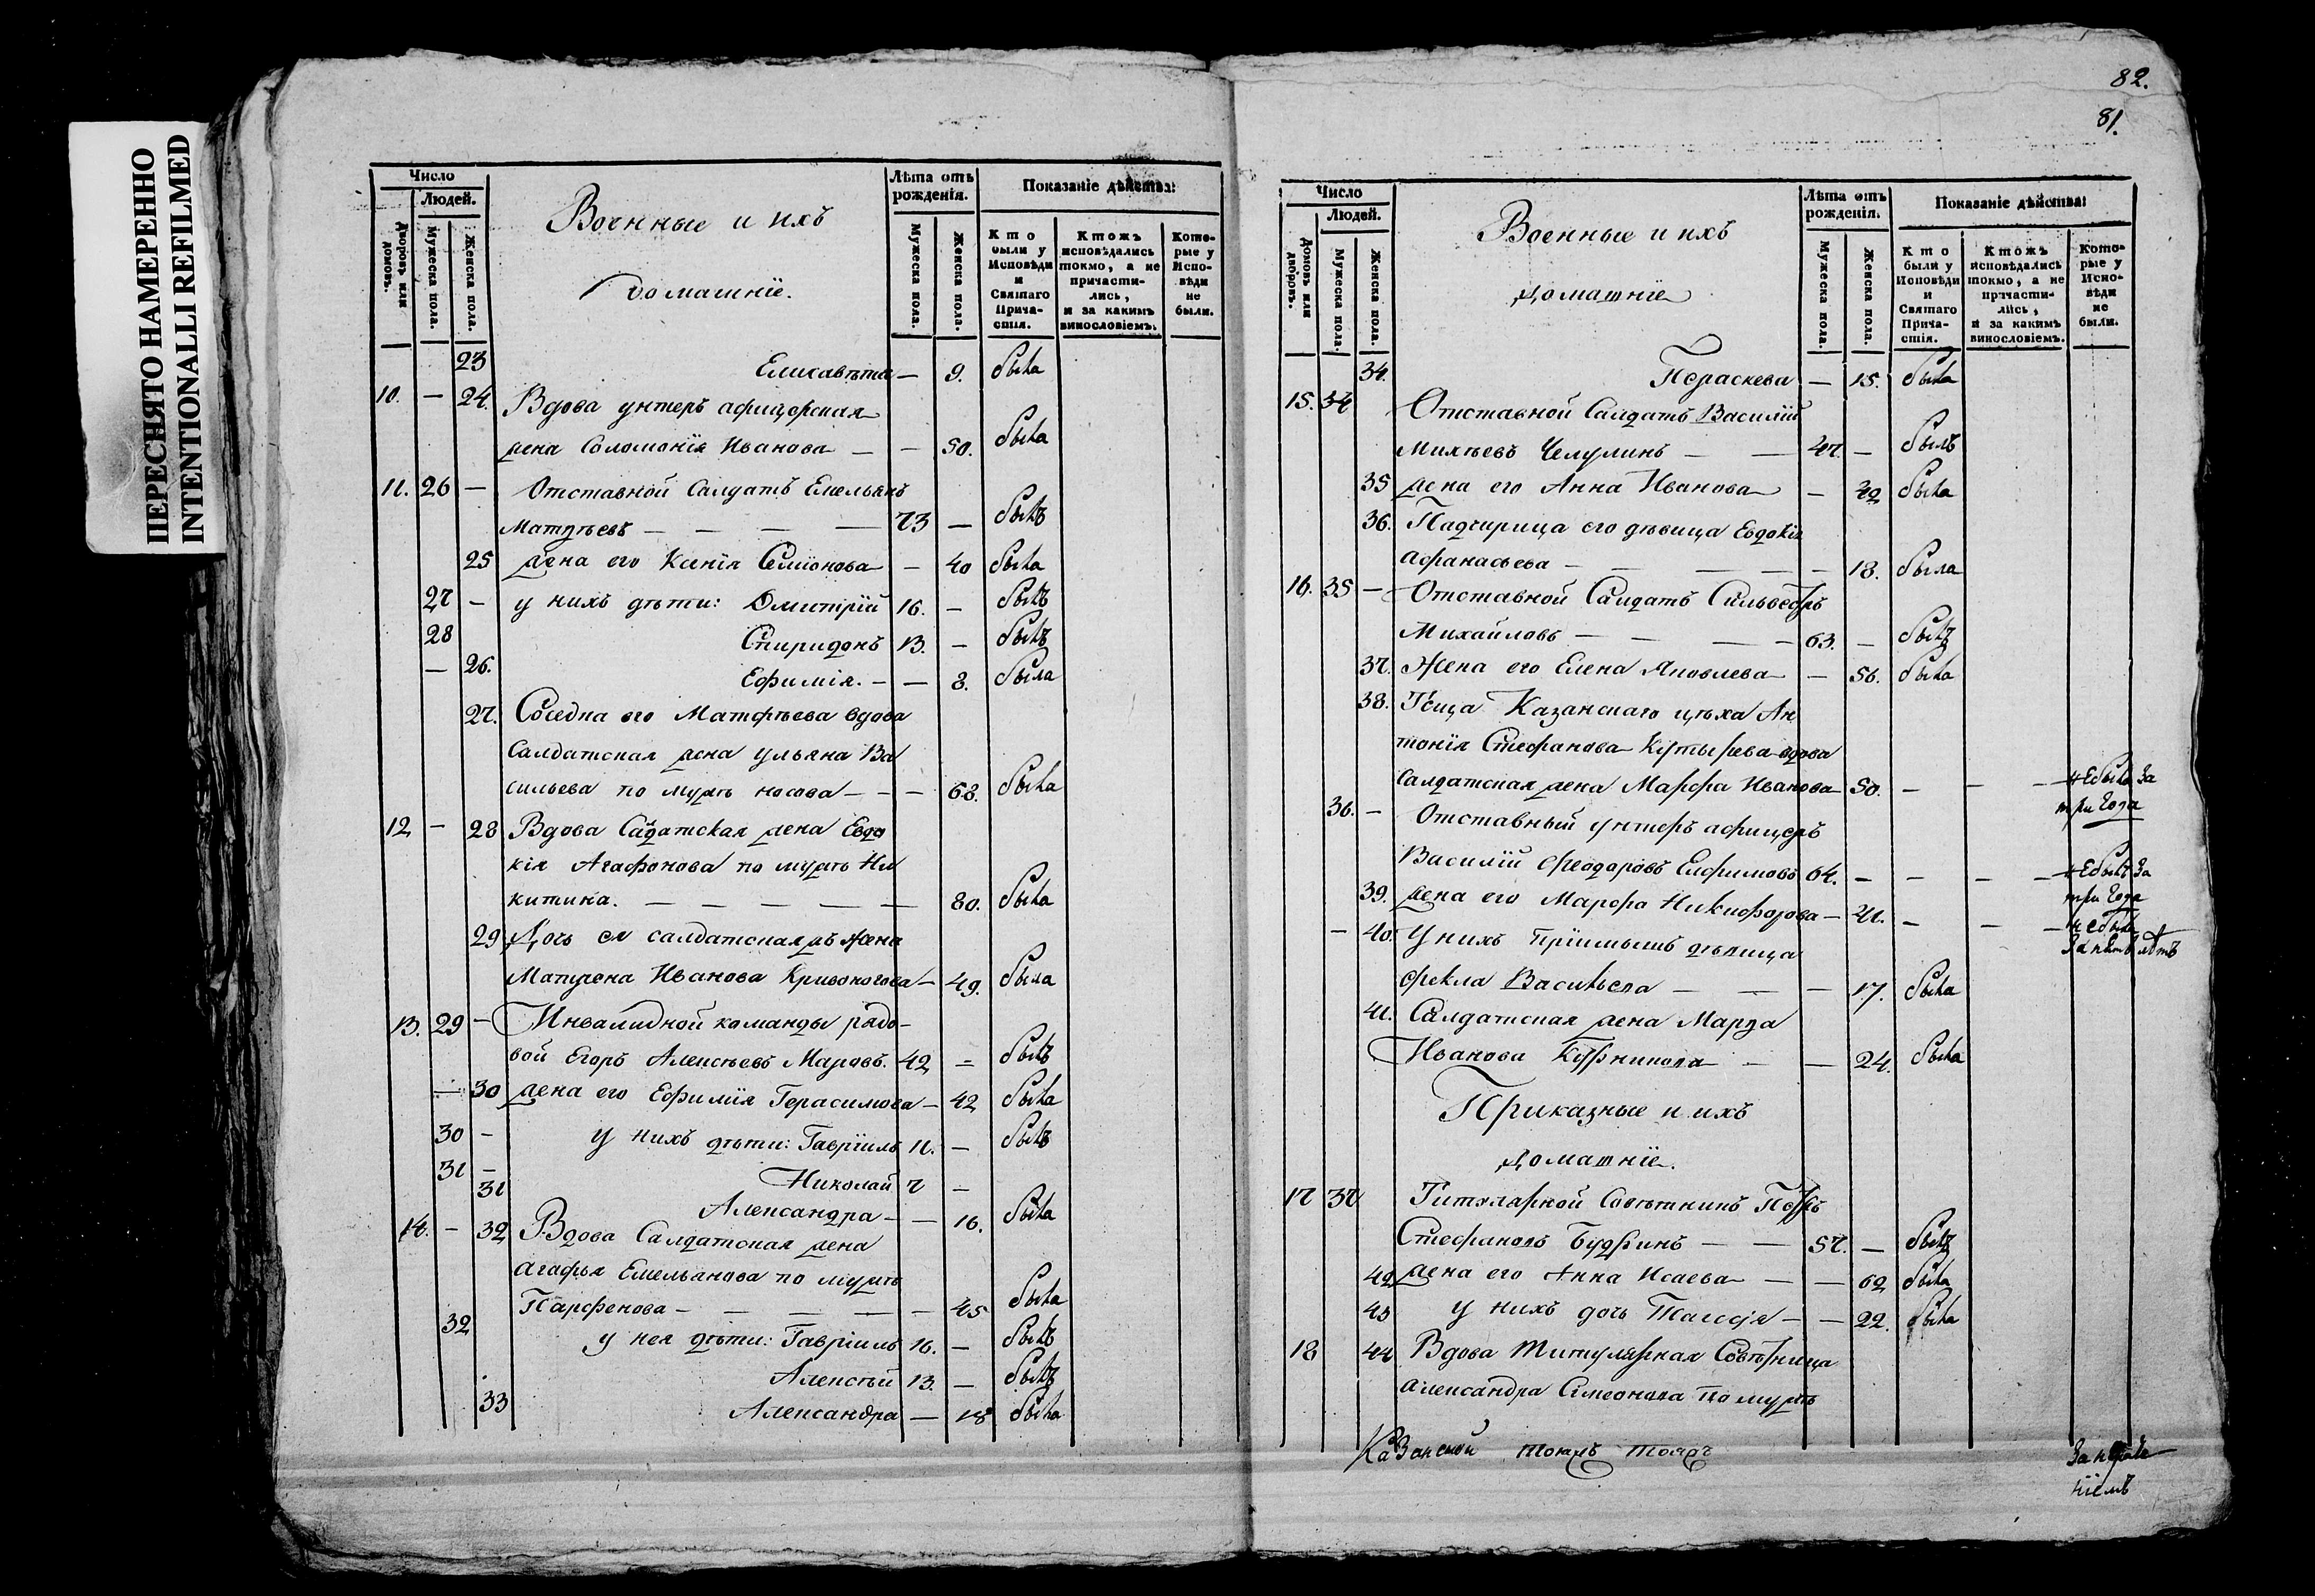 ПЕРЕСНЯТО НАМЕРЕННО
INTENTIONALLI REFILMED
Число
Людей.
Дворовъ или домовъ.
Мужеска пола.
Женска пола.
Военные и ихъ
домашнїе.
Лѣта отъ рожденїя.
Мужеска пола.
Женска пола.
Показанїе дѣйства:
Кто были у Исповѣди и Святаго Прича-стїя.
Ктожъ исповѣдались токмо, а не причасти-лись, и за какимъ винословїемъ.
Кото-рые у Испо-вѣди не были.
23 Елисавѣта — 9. была
10. — 24. Вдова унтеръ афицерская
жена Соломонїя Иванова — — 50. была
11. 26 — Отставной Салдатъ Емельянъ
Матвѣевъ — — — — 73 — былъ
25 жена его Ксенїя Семїонова — 40 была
27 — у нихъ дѣти: Дмитрїй 16. — былъ
28 Спиридонъ 13. — былъ
— 26. Ефимїя. — — 8. была
27. Соседка его Матфѣева вдова
Салдатская жена Ульяна Ва
сильева по мужѣ Носова — — — 68. была
12 — 28 Вдова Садатская жена Евдо
кїя Агафонова по мужѣ Ни
китина. — — — — — 80. была
29 Дочь ея салдатская жъ жена
Матрена Иванова Кривоногова — 49. была
13. 29 — Инвалидной команды рядо-
вой Егоръ Алексѣевъ Маровъ. 42 = былъ
— 30 жена его Ефимїя Герасимова — 42 была
30 — у нихъ дѣти: Гаврїилъ 11. — былъ
31 — Николай 7 —
31 Александра — — 16. была
14. — 32 Вдова Салдатская жена
Агафья Емельянова по мужѣ
Парфенова — — — — — 45 была
32 у нея дѣти: Гаврїилъ 16. — былъ
Алексѣй 13. — былъ
33 Александра — 18 была
82.
81.
Число
Людей.
Домовъ или дворовъ.
Мужеска пола.
Женска пола.
Военные и ихъ
домашнїе
Лѣта отъ рожденїя.
Мужеска пола.
Женска пола.
Показанїе дѣйства:
Кто были у Исповѣди и Святаго Прича-стїя.
Ктожъ исповѣдались токмо, а не причасти-лись, и за какимъ винословїемъ.
Кото-рые у Испо-вѣди не были.
34. Параскева — 15. была
15. 34 Отставной Салдатъ Василїй
Михѣевъ Челулинъ — — 47. — былъ
35 жена его Анна Иванова — 42 была
36. Падчирица его дѣвица Евдокїя
Афанасьева — — — — 18. была
16. 35 — Отставной Салдатъ Сильвестръ
Михайловъ — — — 63. — былъ
37. Жена его Елена Яковлева — 56. была
38. Казанскаго цѣха Ан
тонїя Стефанова вдова
салдатская жена Марфа Иванова 50. — — — не была за
три года
36. — Отставный унтеръ афицеръ
Василїй Феодоровъ Ефимовъ 64. — — — — не былъ за
три года
39. жена его Марфа Никифорова — 41. — — — не была
за пять лѣтъ
— 40. У нихъ прїимышъ дѣвица
Фекла Васильева — — — 17. была
41. Салдатская жена Марфа
Иванова — — 24. была
Приказные и ихъ
домашнїе.
17 37 Титулярной Совѣтникъ Петръ
Стефановъ Будринъ — — 57. — былъ
42 жена его Анна Исаева — — 62 была
43 у нихъ дочь Таисїя — — 22. была
18 44 Вдова титулярная Совѣтница
Александра Симеонова по мужѣ
Казанской